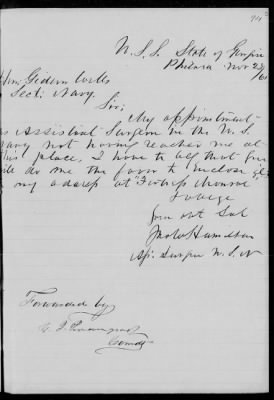 U.S.S. State of Georgia
Philada Nov 23
/61
Hon: Gideon Wells
Sect: Navy.
Sir;
My appointment
as Assistant Surgeon in the U.S.
Navy not having reached me at
this place, I have to ask that you
will do me the favor to enclose it to
my adress at Fortress Monroe
& oblige
Your obt
Act: Surgeon U.S.N
Forwarded by
Comdr